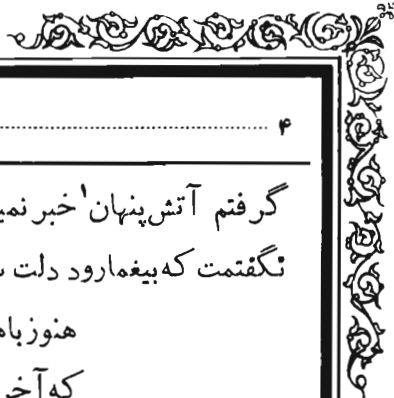 ۴
گرفتم آتش پنهان۱ خبر نمی
نگفتمت که بیغما رود دلت
هنوز با
که آخر